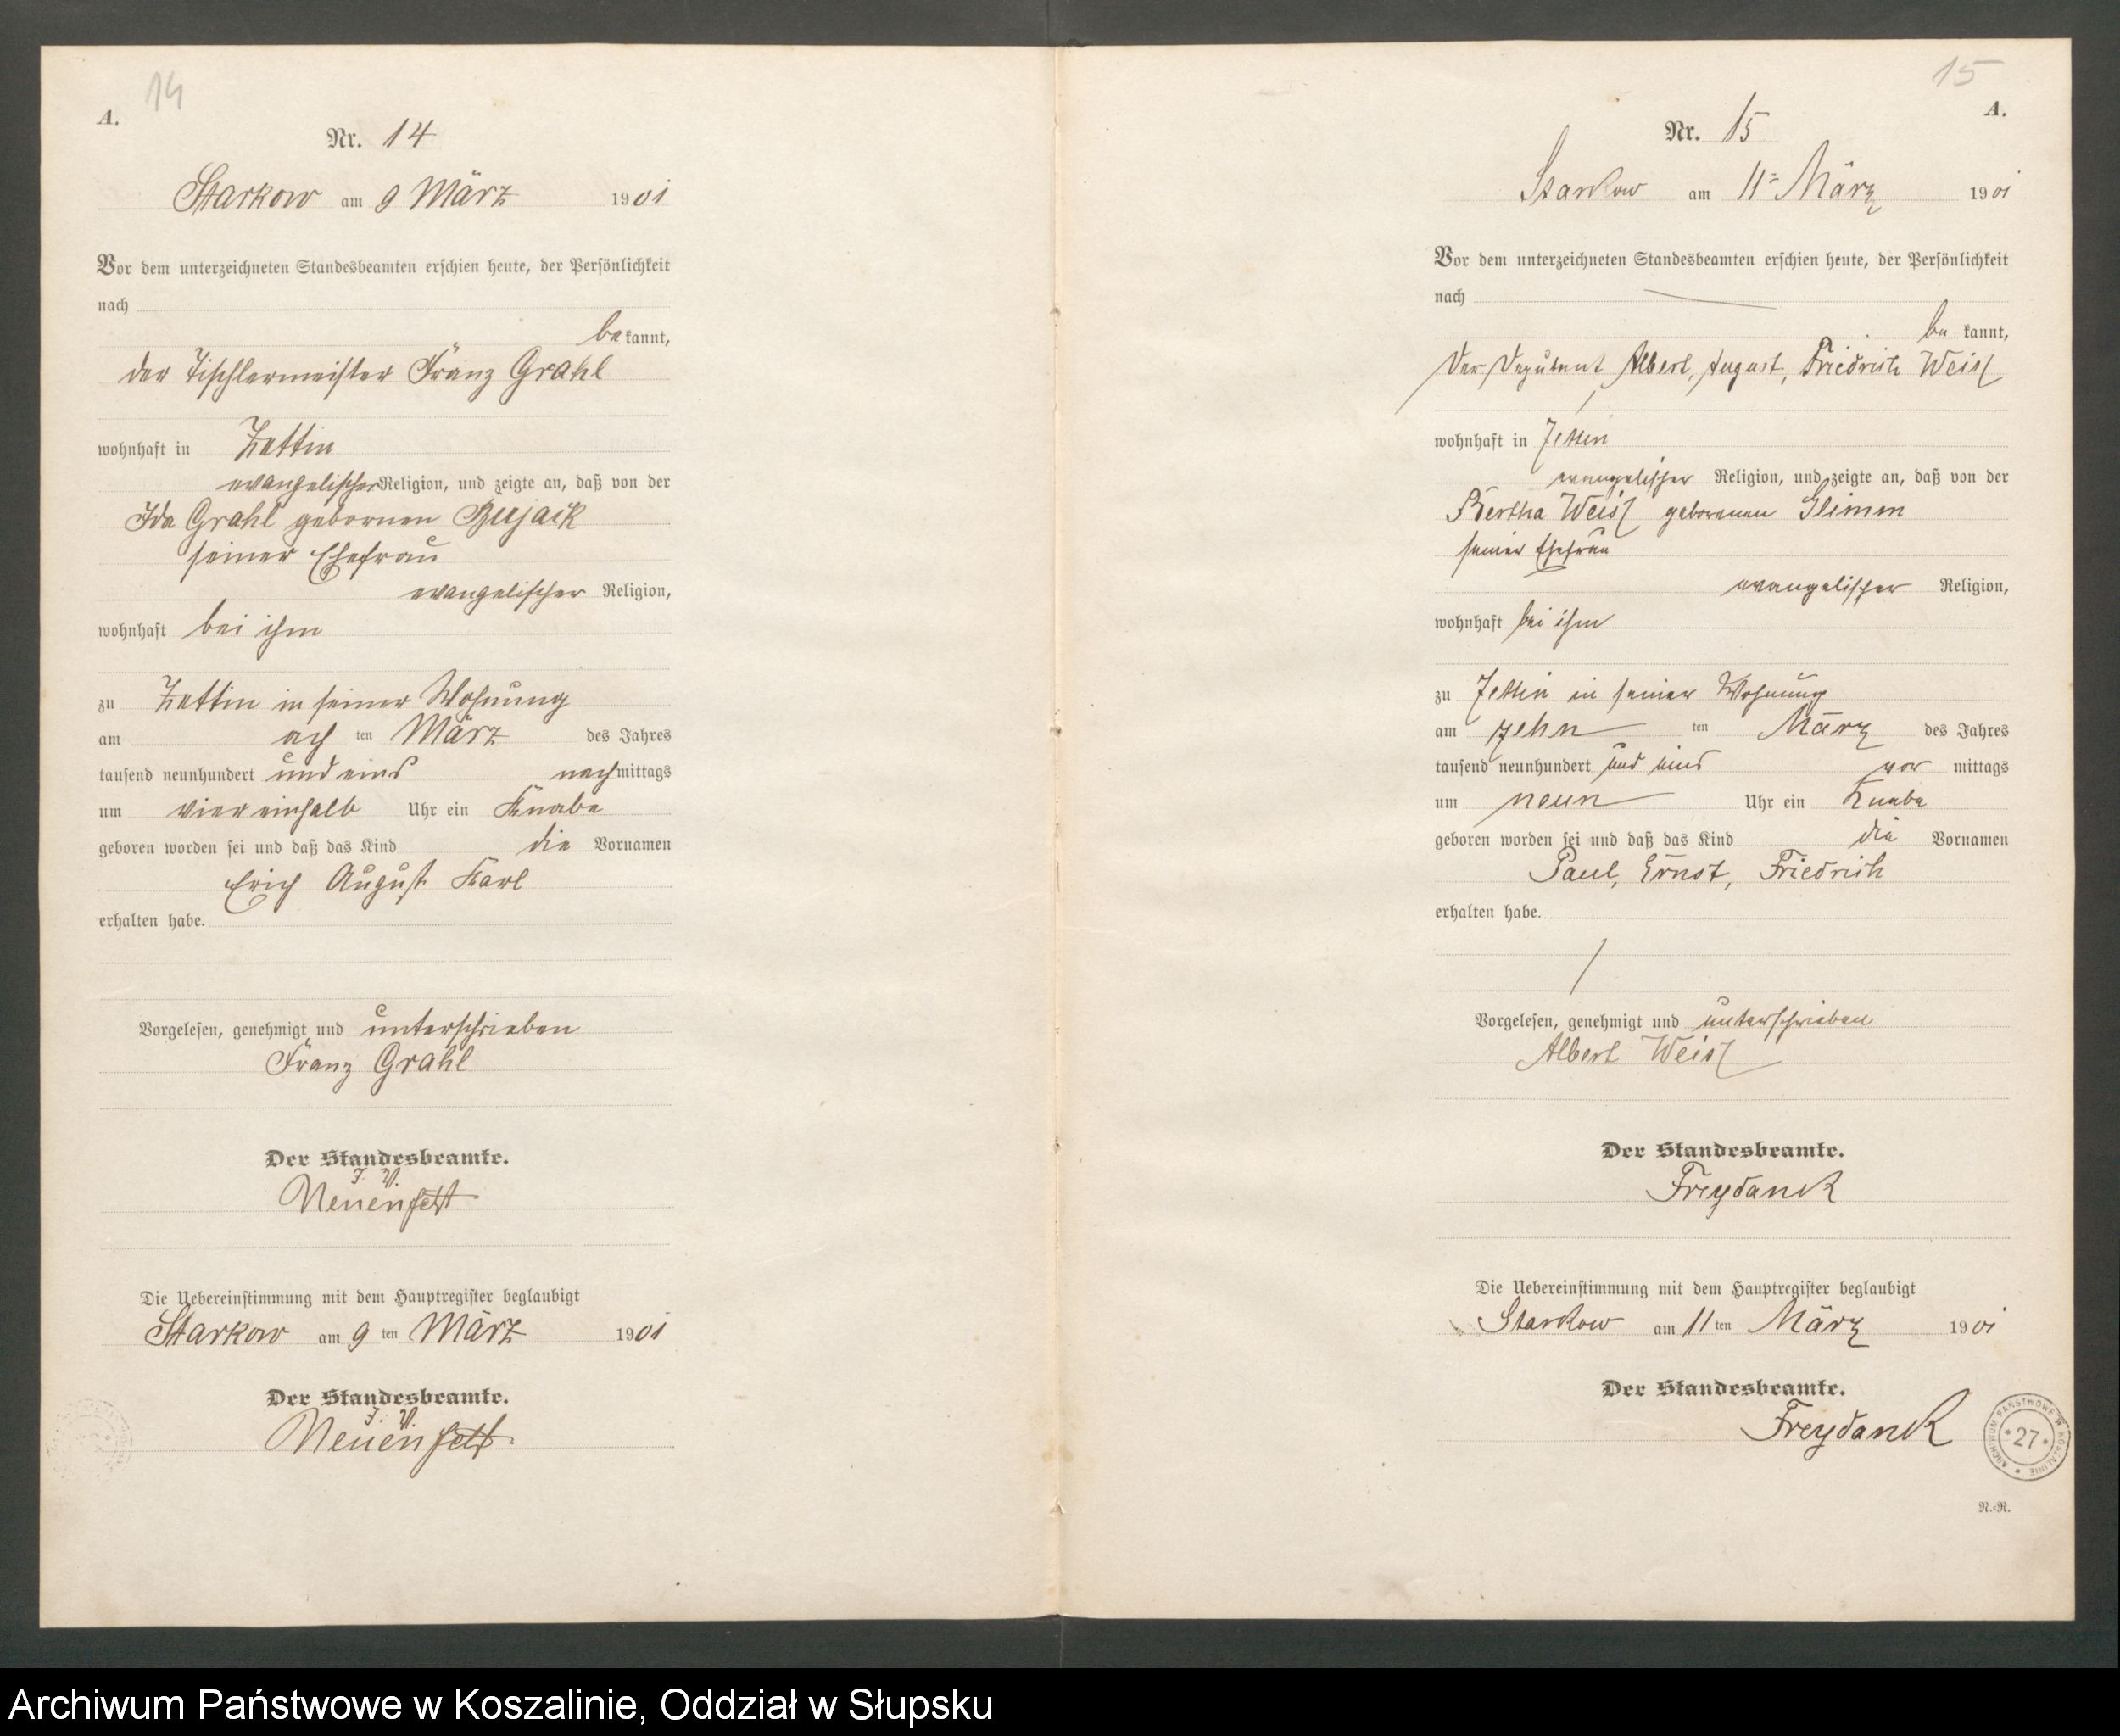 14
A.
Nr. 14
Starkow am 9 März 1901
Vor dem unterzeichneten Standesbeamten erschien heute, der Persönlichkeit
nach
be kannt,
der Tischlermeister Franz Grahl
wohnhaft in Zettin
evangelischer Religion, und zeigte an, daß von der
Ida Grahl gebornen Bujack
seiner Ehefrau
evangelischer Religion,
wohnhaft bei ihm
zu Zettin in seiner Wohnung
am ach ten März des Jahres
tausend neunhundert und eins nach mittags
um vier einhalb Uhr ein Knabe
geboren worden sei und daß das Kind die Vornamen
Erich August Karl
erhalten habe.
Vorgelesen, genehmigt und unterschrieben
Franz Grahl
Der Standesbeamte.
J. V.
Die Uebereinstimmung mit dem Hauptregister beglaubigt
Starkow am 9 ten März 1901
Der Standesbeamte.
J. V.
15
A.
Nr. 15
Starkow am 11 März 1901
Vor dem unterzeichneten Standesbeamten erschien heute, der Persönlichkeit
nach
be kannt,
Der Deputant Albert, August, Friedrich Weiß
wohnhaft in Zettin
evangelischer Religion, und zeigte an, daß von der
Bertha Weiß geborenen Glimm
seiner Ehefrau
evangelischer Religion,
wohnhaft bei ihm
zu Zettin in seiner Wohnung
am zehn ten März des Jahres
tausend neunhundert und eins vor mittags
um neun Uhr ein Knabe
geboren worden sei und daß das Kind die Vornamen
Paul, Ernst, Friedrich
erhalten habe.
Vorgelesen, genehmigt und unterschrieben
Albert Weiß
Der Standesbeamte.
Freydank
Die Uebereinstimmung mit dem Hauptregister beglaubigt
Starkow am 11 ten März 1901
Der Standesbeamte.
Freydank
ARCHIWUM PAŃSTWOWE W KOSZALINIE
* 27 *
R.-R.
Archiwum Państwowe w Koszalinie, Oddział w Słupsku